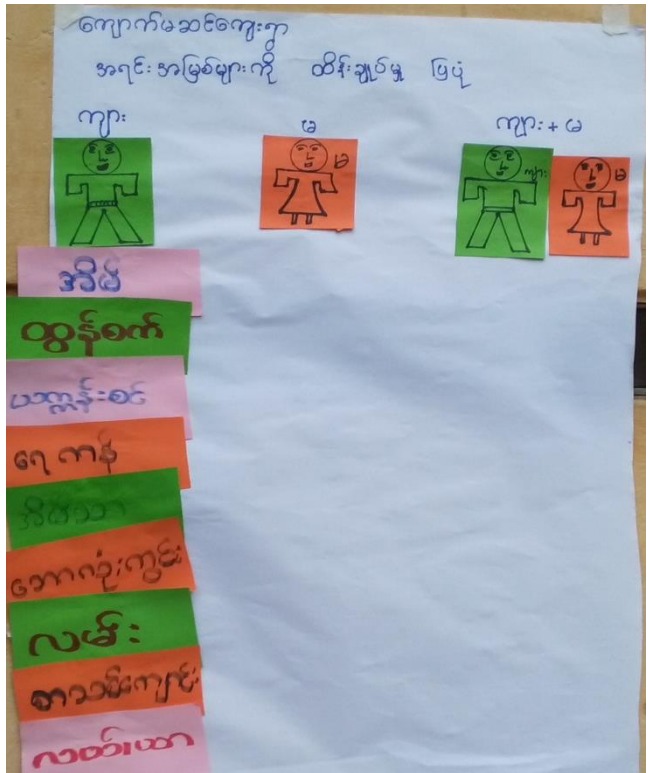 ကျောက်မဆင်ကျေးရွာ
အရင်းအမြစ်များကို ထိန်းချုပ်မှု ပြပုံ
ကျား မ ကျား + မ
မ ကျား မ
အိမ်
ထွန်စက်
ယက္ကန်းစင်
ရေကန်
အိမ်သာ
ဘောလုံးကွင်း
လမ်း
စာသင်ကျောင်း
လယ်ယာ